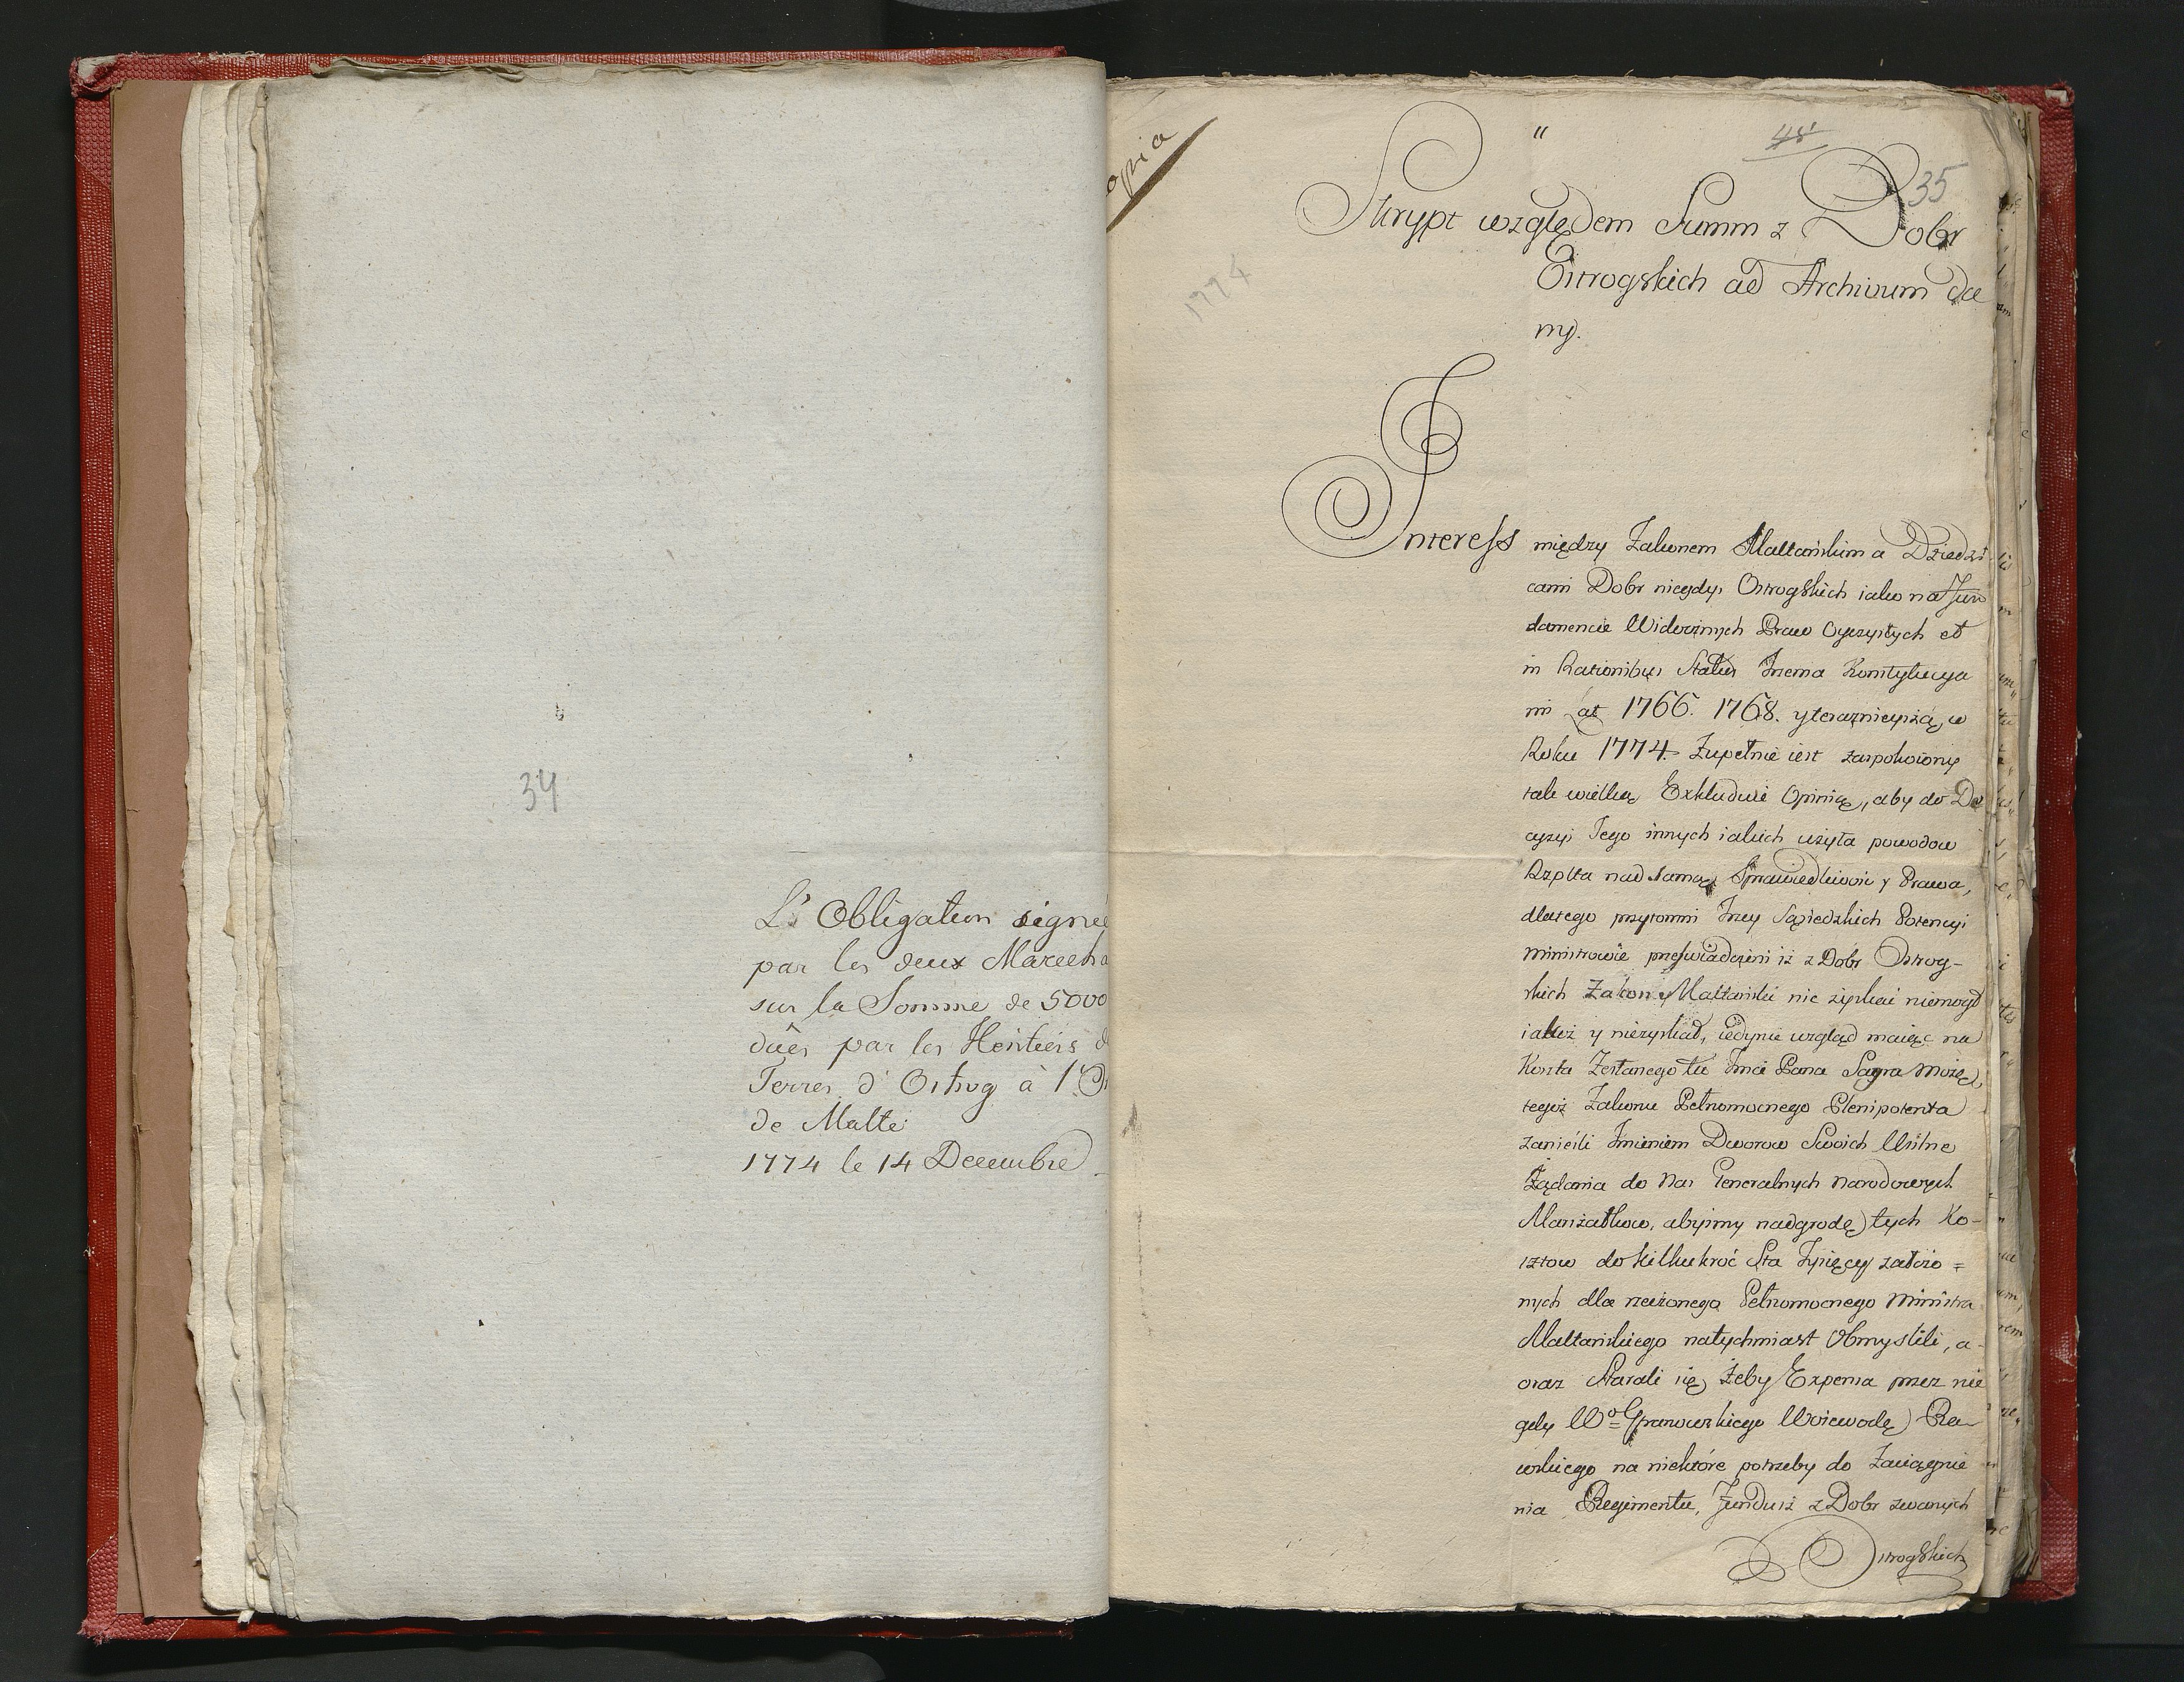 34
L'Obligation signée
par les deux Marecha
sur la Somme de 5000
dûes par les Heritiers d
Terres d'Ostrog à l'Or
de Malte
1774 le 14 Decembre
opia
"
48
35
1774
Skrypt względem Summ z Dobr
Ostrogskich ad Archivum da
ny.
Interess między Zakonem Maltańskim a Dziedzi
cami Dobr niegdyś Ostrogskich iako na Fun
damencie Widocznych Praw Oyczystych et
in Rationibus Status Trzema Konstytucya
mi Lat 1766. 1768. y teraznieyszą w
Roku 1774. Zupełnie iest zaspokoiony
tak wielką Exkluduie Opinią, aby do De
cyzyi Jego innych iakich użyła powodow
Rzplta nad samą Sprawiedliwość y Prawa,
dlatego przytomni Trzey Sąsiedzkich Potencyi
Ministrowie przeswiadczeni iż z Dobr Ostrog-
skich Zakon Maltański nic zyskać niemogł
iakoż y niezyskał, iedynie wzgląd maiąc na
Koszta Zesłanego tu Jmci Pana Sagramozę,
tegoż Zakonu Pełnomocnego Plenipotenta
zanieśli Jmieniem Dworow Swoich Usilne
Żądania do Nas Generalnych Narodowych
Marszałkow, abyśmy nadgrodę tych Ko-
sztow do kilkukroć Sta Tysięcy załozo=
nych dla rzeczonego Pełnomocnego Ministra
Maltańskiego natychmiast Obmyslili, a-
oraz Starali się żeby Expensa przez nie
gdy Wo Granowskiego Woiewodę Ra-
wskiego na niektóre potrzeby do Zaciągnie
nia Regimentu, Fundusz z Dobr zwanych
Ostrogskich